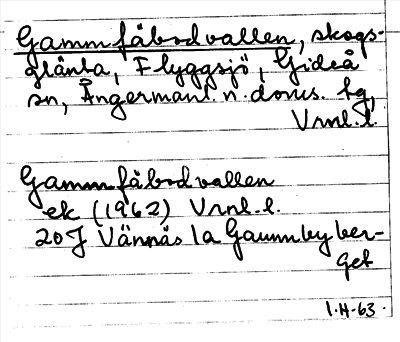 Gammfäbodvallen, skogs-
glänta, Flyggsjö, Gideå
sn, Ångermanl. n. doms. hg,
Vrnl. l.
Gammfäbodvallen
ek (1962) Vrnl. l.
20J Vännäs 1a Gammbyber-
get
1.4-63.